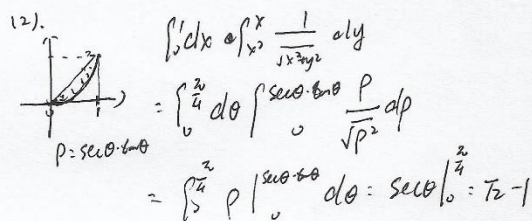 (2). ∫₀¹dx ∫_{x²}^{x} 1/√(x²+y²) dy
= ∫₀^{π/4} dθ ∫₀^{secθ·tanθ} ρ/√(ρ²) dρ
ρ=secθ·tanθ
= ∫₀^{π/4} ρ |₀^{secθ·tanθ} dθ = secθ |₀^{π/4} = √2 -1